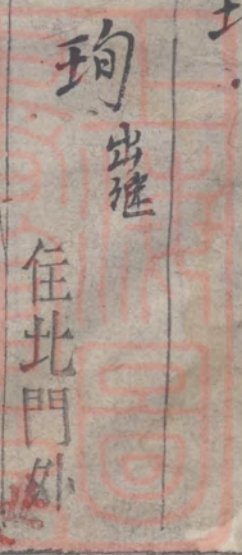 珣
出继
住北門外